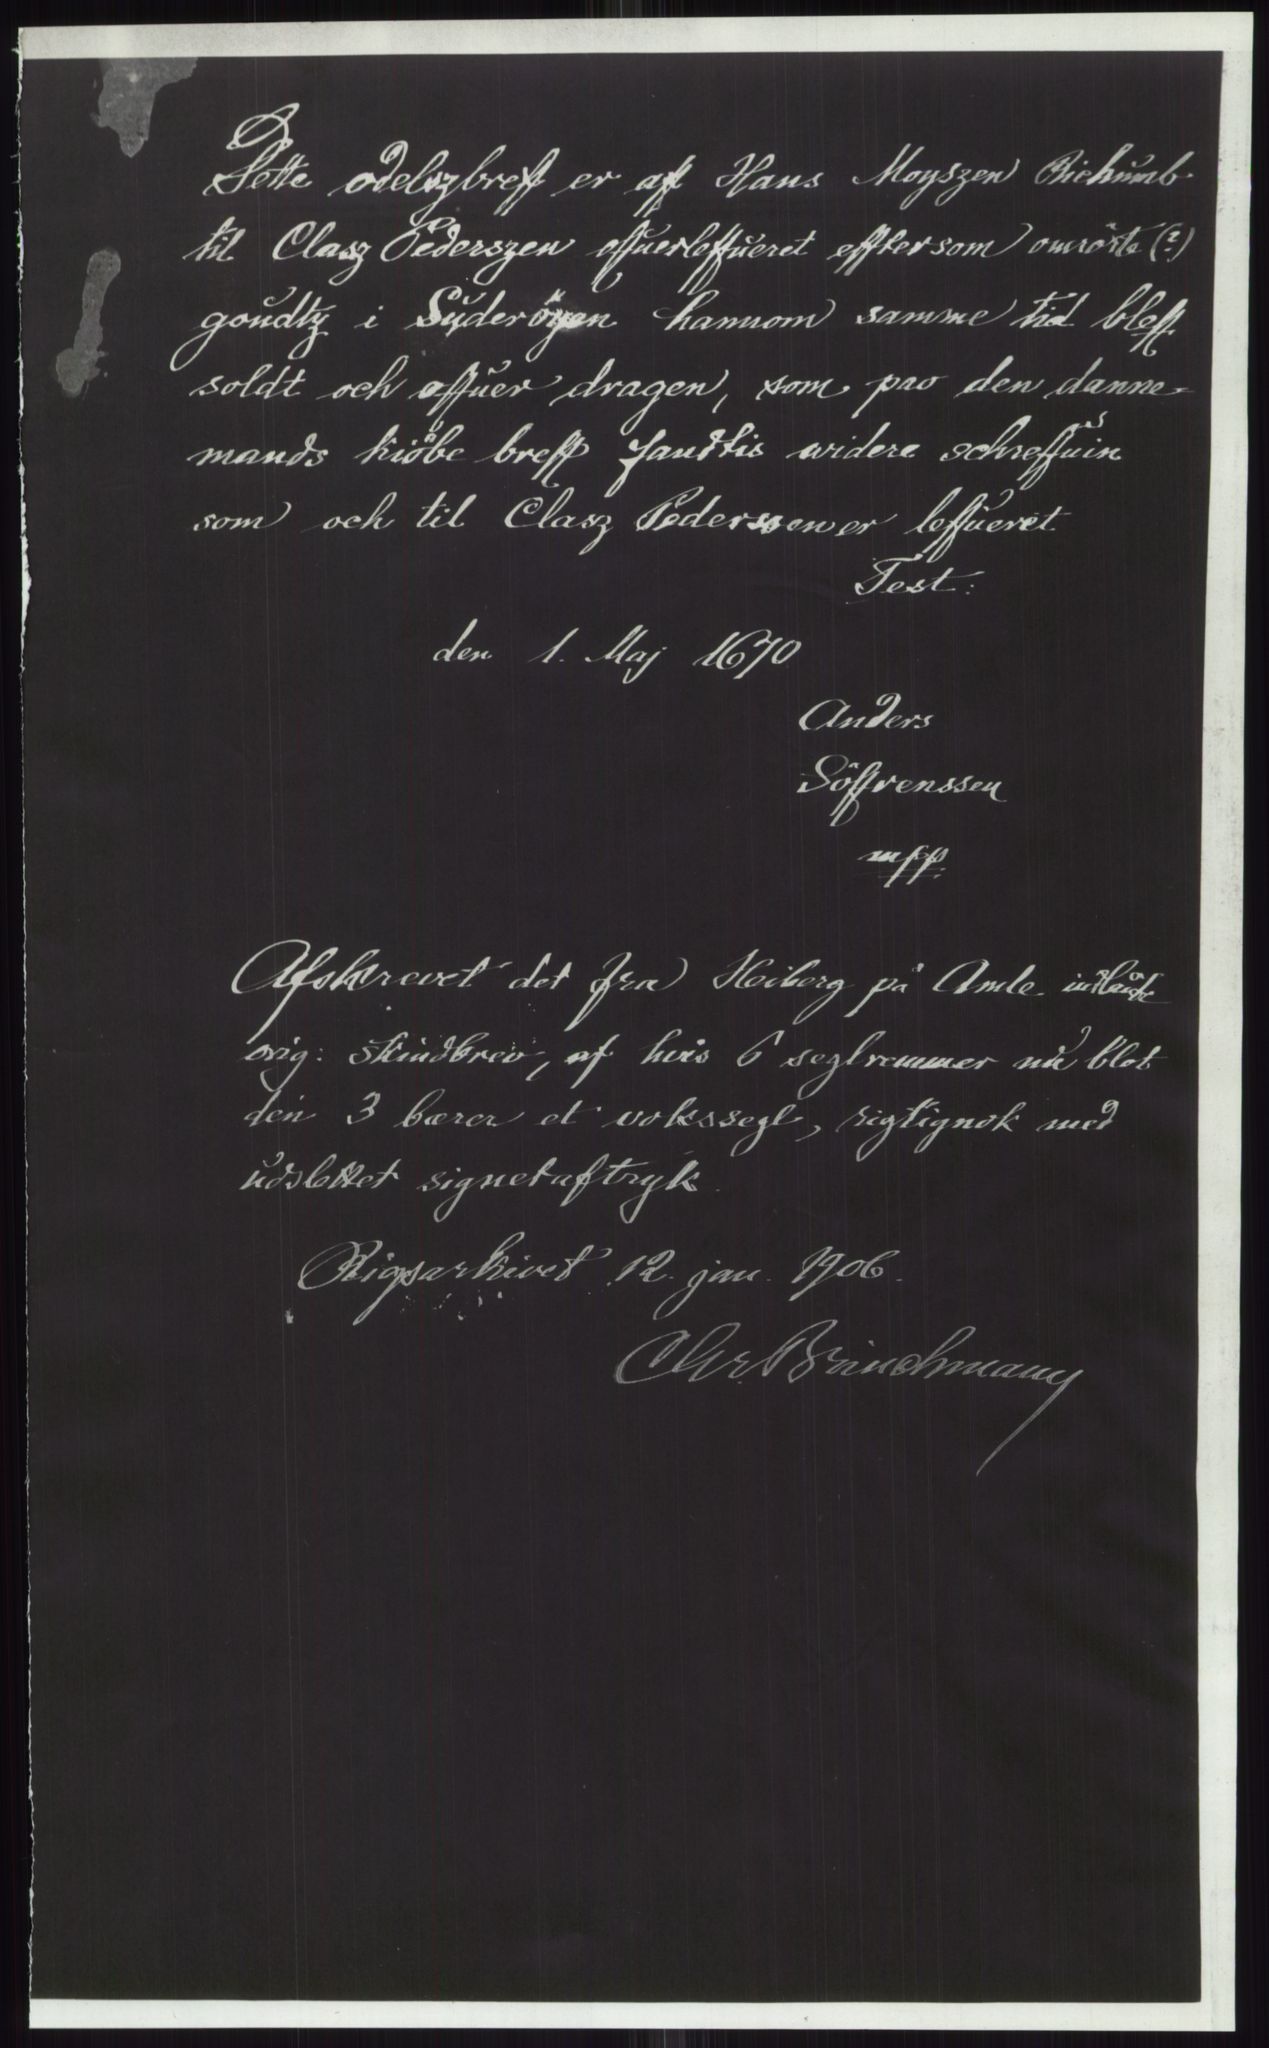 Dette odelszbreff er aff Hans Moyszen Richumb
til Clasz Pederszen offuerleffueret efftersom omrörte (?)
goudtz i Süderöyen hannom samme tid bleff
soldt och offuer dragen, som paa den danne-
mands kiöbe breff fandtis widere schreffuin
som och til Clasz Pederssen er leffueret
Test:
den 1. Maj 1670
Anders
Söffrenssen
mpp.
Afskrevet det fra Heiberg på Amle indlånte
orig: skindbrev, af hvis 6 seglremmer nu blot
den 3 bærer et vokssegl, rigtignok med
udslettet signetaftryk.
Rigsarkivet 12. jan. 1906.
Chr. Brinchmann